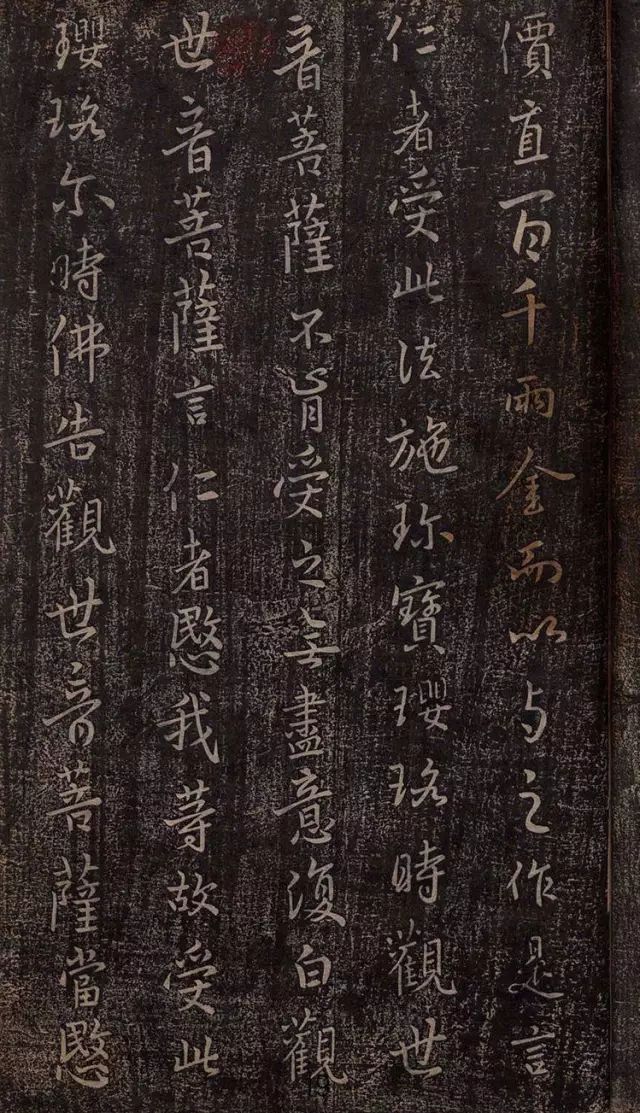 價直百千兩金而以与之作是言
仁者受此法施珎寶瓔珞時觀世
音菩薩不肯受之無盡意復白觀
世音菩薩言仁者愍我等故受此
瓔珞尒時佛告觀世音菩薩當愍